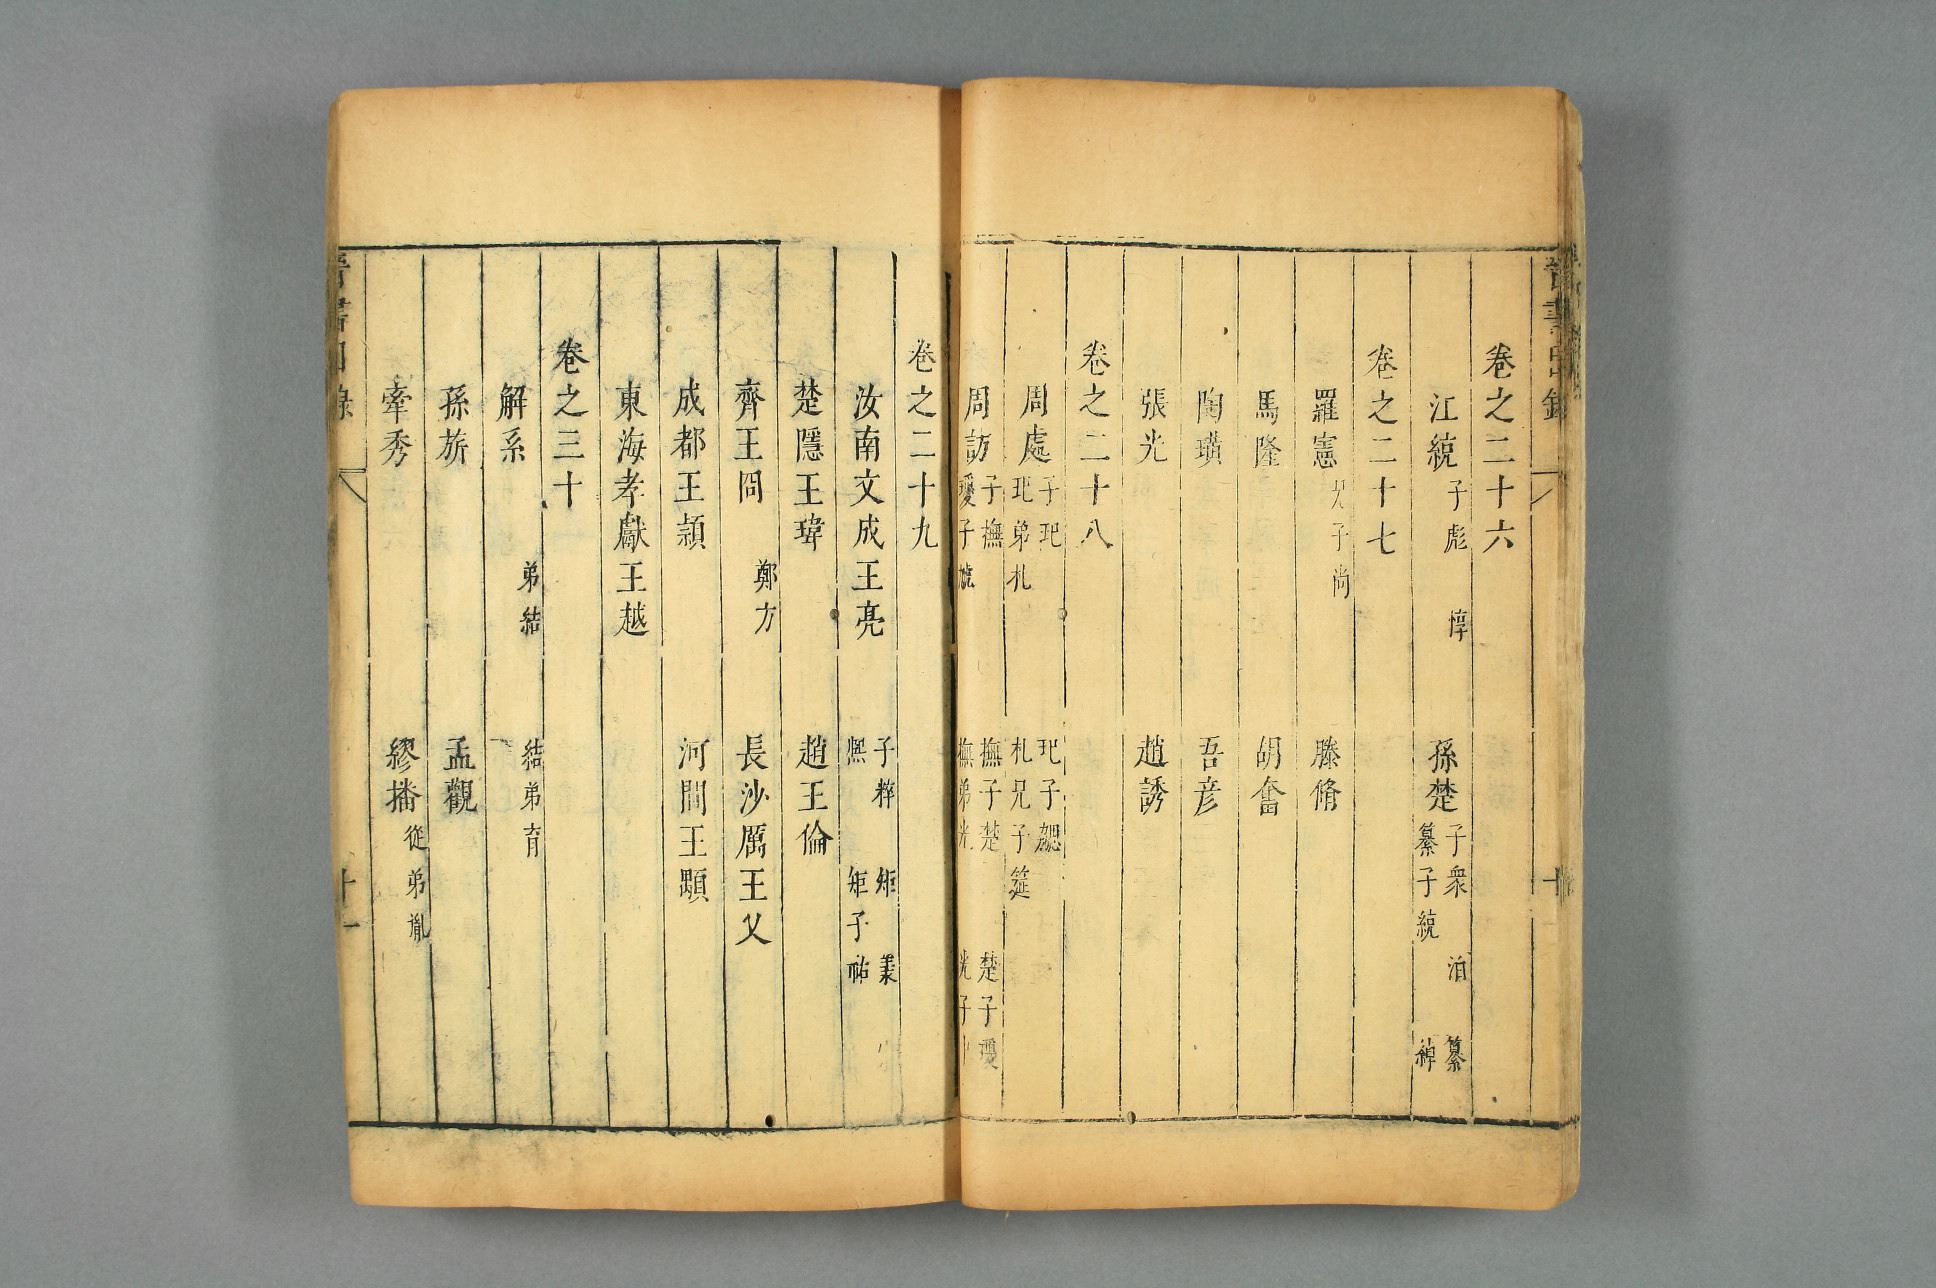 晉書目錄
十
卷之二十六
江統 子彪 惇 孫楚 子衆 洎 纂 纂子統 綽
卷之二十七
羅憲 兄子尚 滕脩
馬隆 胡奮
陶璜 吾彥
張光 趙誘
卷之二十八
周處 子玘 玘弟札 玘子勰 札兄子筵
周訪 子撫 撫子楚 楚子瓊 瓊子虓 撫弟光 光子
卷之二十九
汝南文成王亮 子粹 矩 羕 熈 矩子祐
楚隱王瑋 趙王倫
齊王冏 鄭方 長沙厲王乂
成都王潁 河間王顒
東海孝獻王越
卷之三十
解系 弟結 結弟育
孫旂 孟觀
牽秀 繆播 從弟胤
晉書目錄
十一